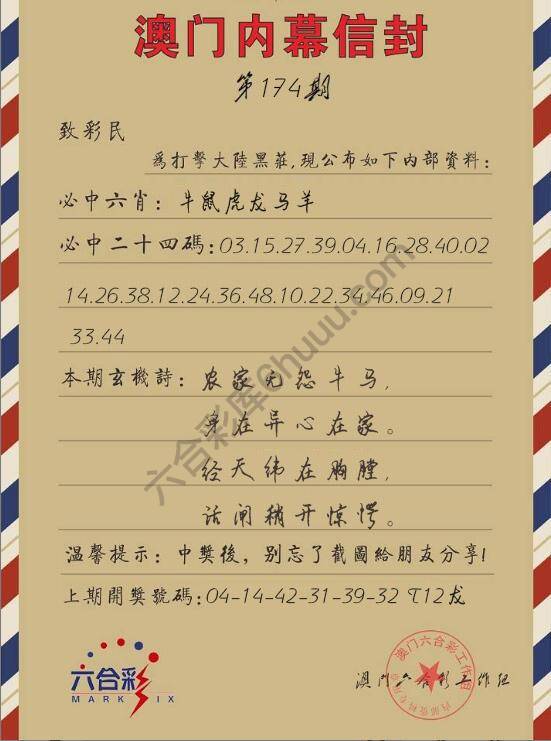 澳门内幕信封
第174期
致彩民
為打擊大陸黑莊,現公布如下内部資料:
必中六肖: 牛鼠虎龙马羊
必中二十四碼:03.15.27.39.04.16.28.40.02
14.26.38.12.24.36.48.10.22.34.46.09.21
33.44
本期玄機詩: 农家无怨牛马,
身在异心在家。
经天纬在胸膛,
话闸稍开惊愕。
温馨提示: 中獎後, 别忘了截圖給朋友分享!
上期開獎號碼:04-14-42-31-39-32 T12龙
六合彩
MARK SIX
澳门六合彩工作组
澳门六合彩工作组
六合彩库6huuu.com